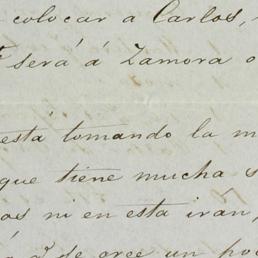 colocar a Carlos,
será á Zamora o
está tomando la m
que tiene mucha s
os ni en esta iran,
de cree un po